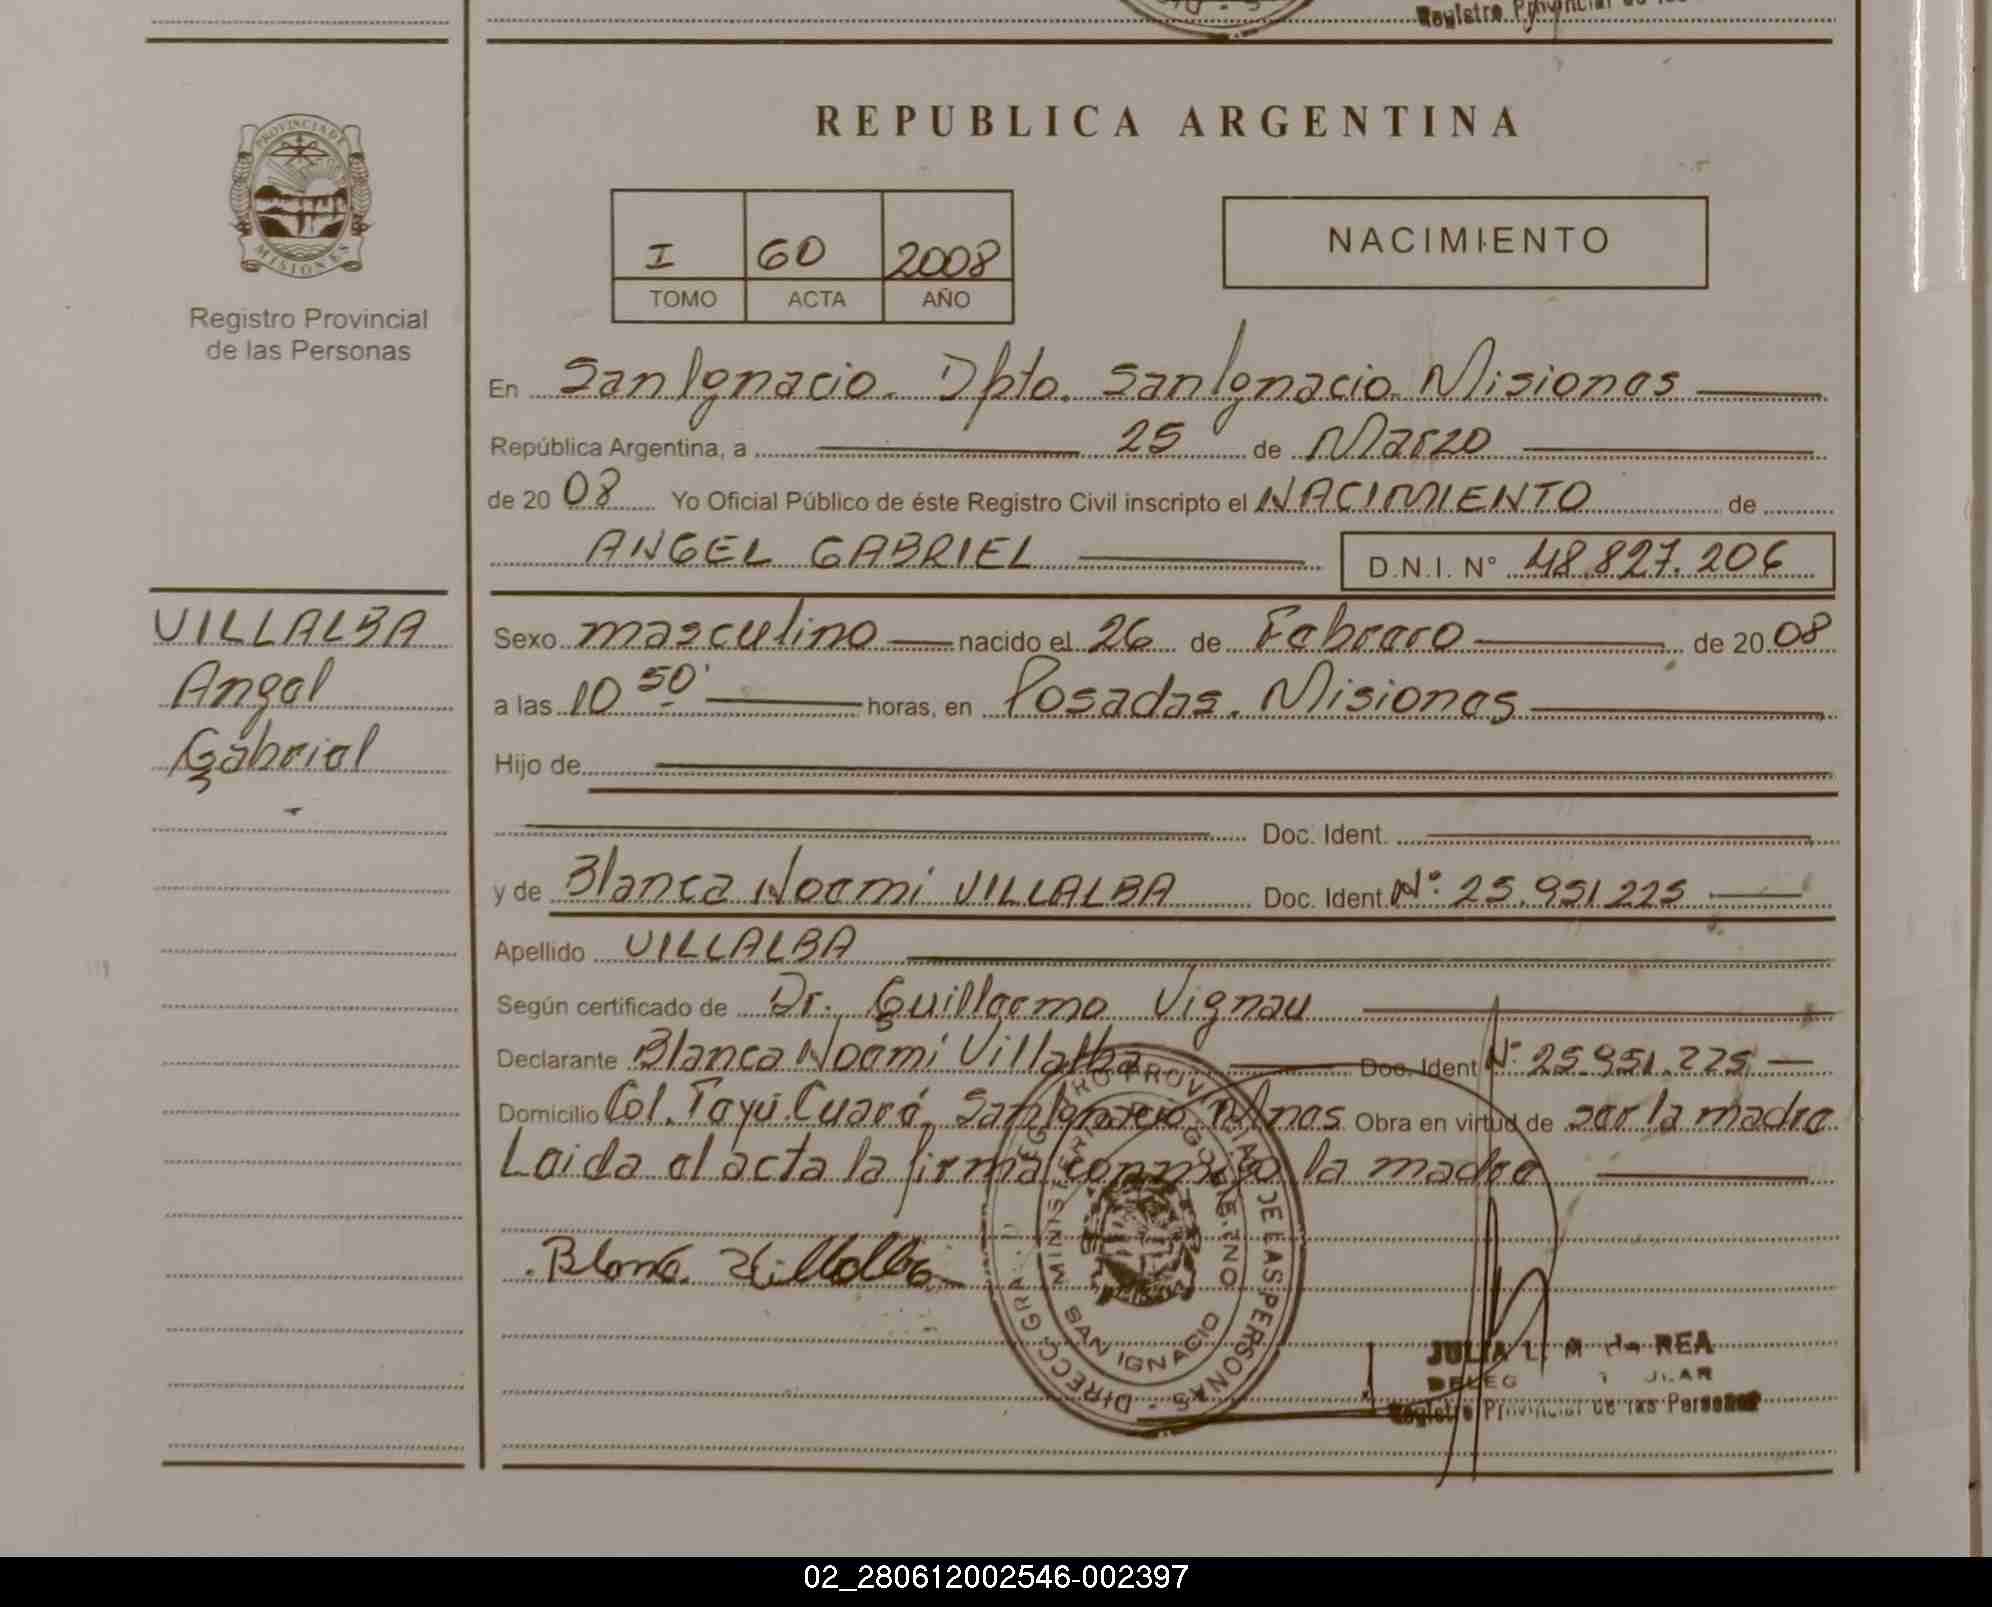 Registro Provincial de las
REPUBLICA ARGENTINA
PROVINCIA DE
MISIONES
Registro Provincial
de las Personas
I 60 2008
TOMO ACTA AÑO
NACIMIENTO
En San Ignacio. Dpto. San Ignacio. Misiones
República Argentina, a 25 de Marzo
de 2008 Yo Oficial Público de éste Registro Civil inscripto el NACIMIENTO de
ANGEL GABRIEL D.N.I. N° 48.827.206
VILLALBA
Angel
Gabriel
Sexo masculino nacido el 26 de Febrero de 2008
a las 10 50' horas, en Posadas. Misiones
Hijo de
Doc. Ident.
y de Blanca Noemi VILLALBA Doc. Ident. N°: 25.951.225
Apellido VILLALBA
Según certificado de Dr. Guillermo Vignau
Declarante Blanca Noemi Villalba Doc. Ident N° 25.951.225
Domicilio Col. Teyú Cuaré, San Ignacio, Mnes Obra en virtud de ser la madre
Leida el acta la firma conmigo la madre
Blanca Villalba
DIRECC. GRAL. REGISTRO PROVINCIAL DE LAS PERSONAS
MINISTERIO DE GOBIERNO
SAN IGNACIO
JULIA L. M de REA
Registro Provincial de las Personas
02_280612002546-002397